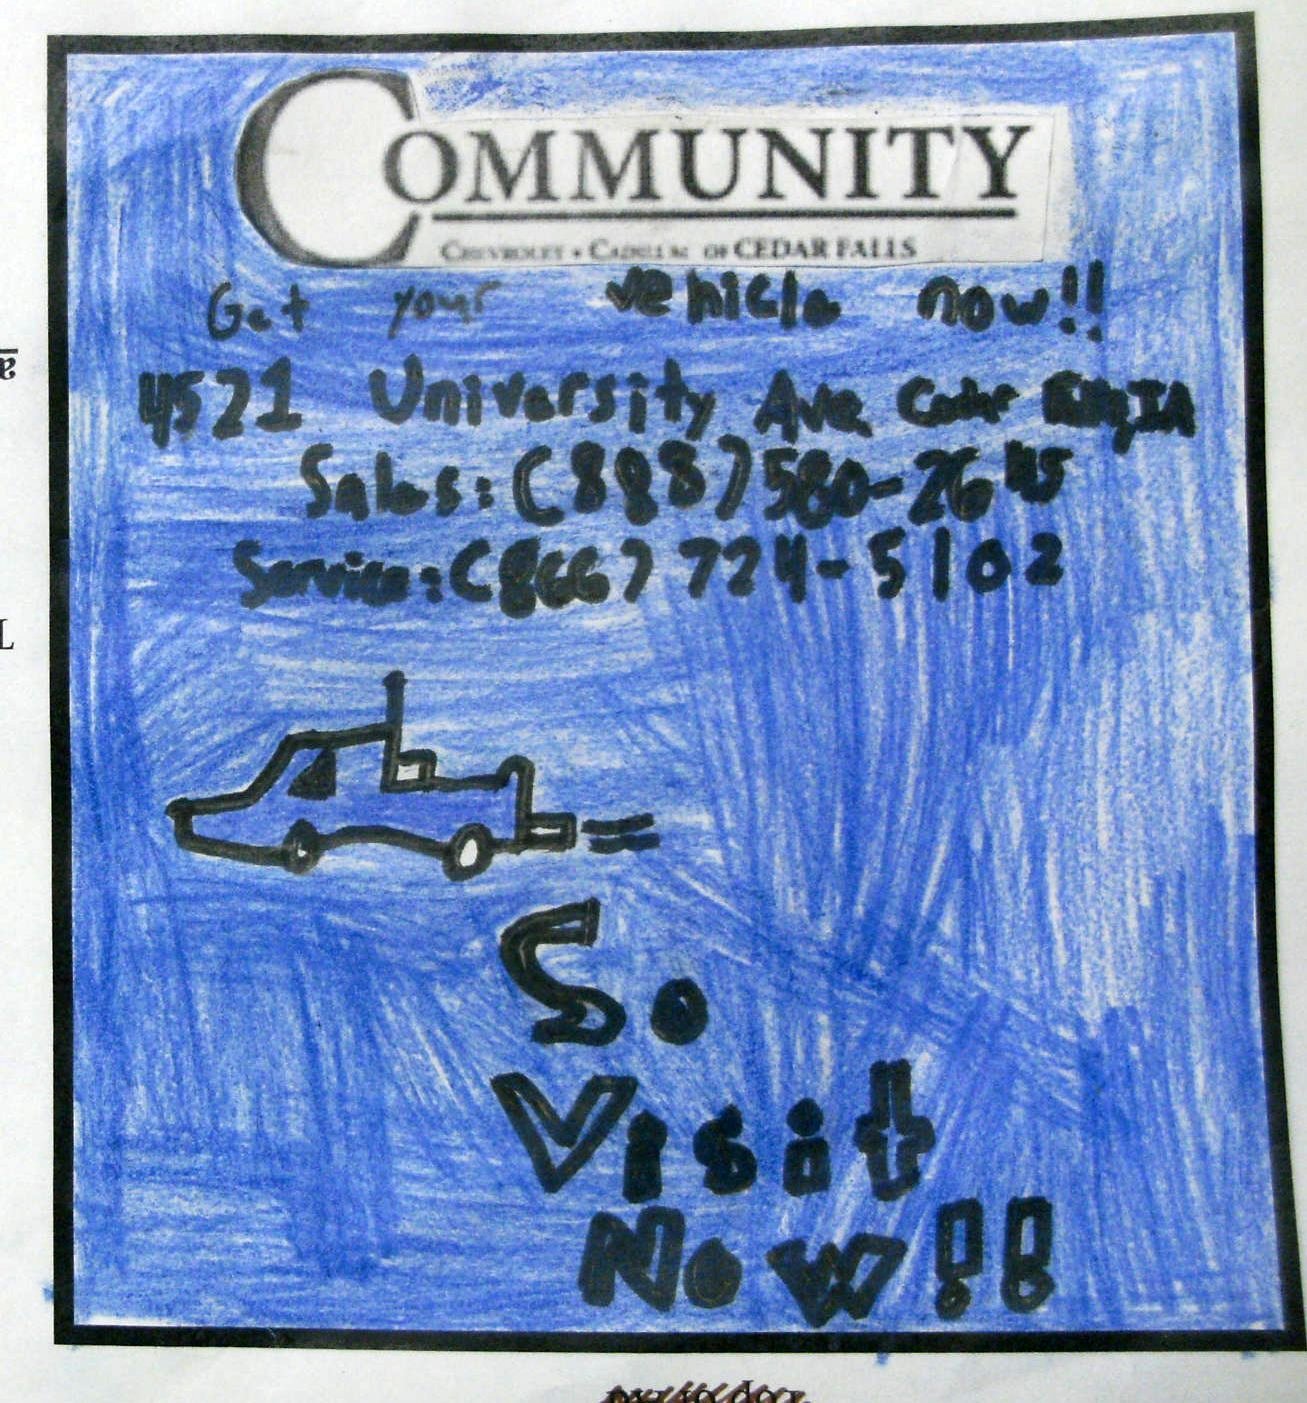 COMMUNITY
CHEVROLET • CADILLAC OF CEDAR FALLS
Get your vehicle now!!
4521 University Ave Cedar IA
Sales: (888) 580-2645
Service: (866) 724-5102
So
Visit
Now!!